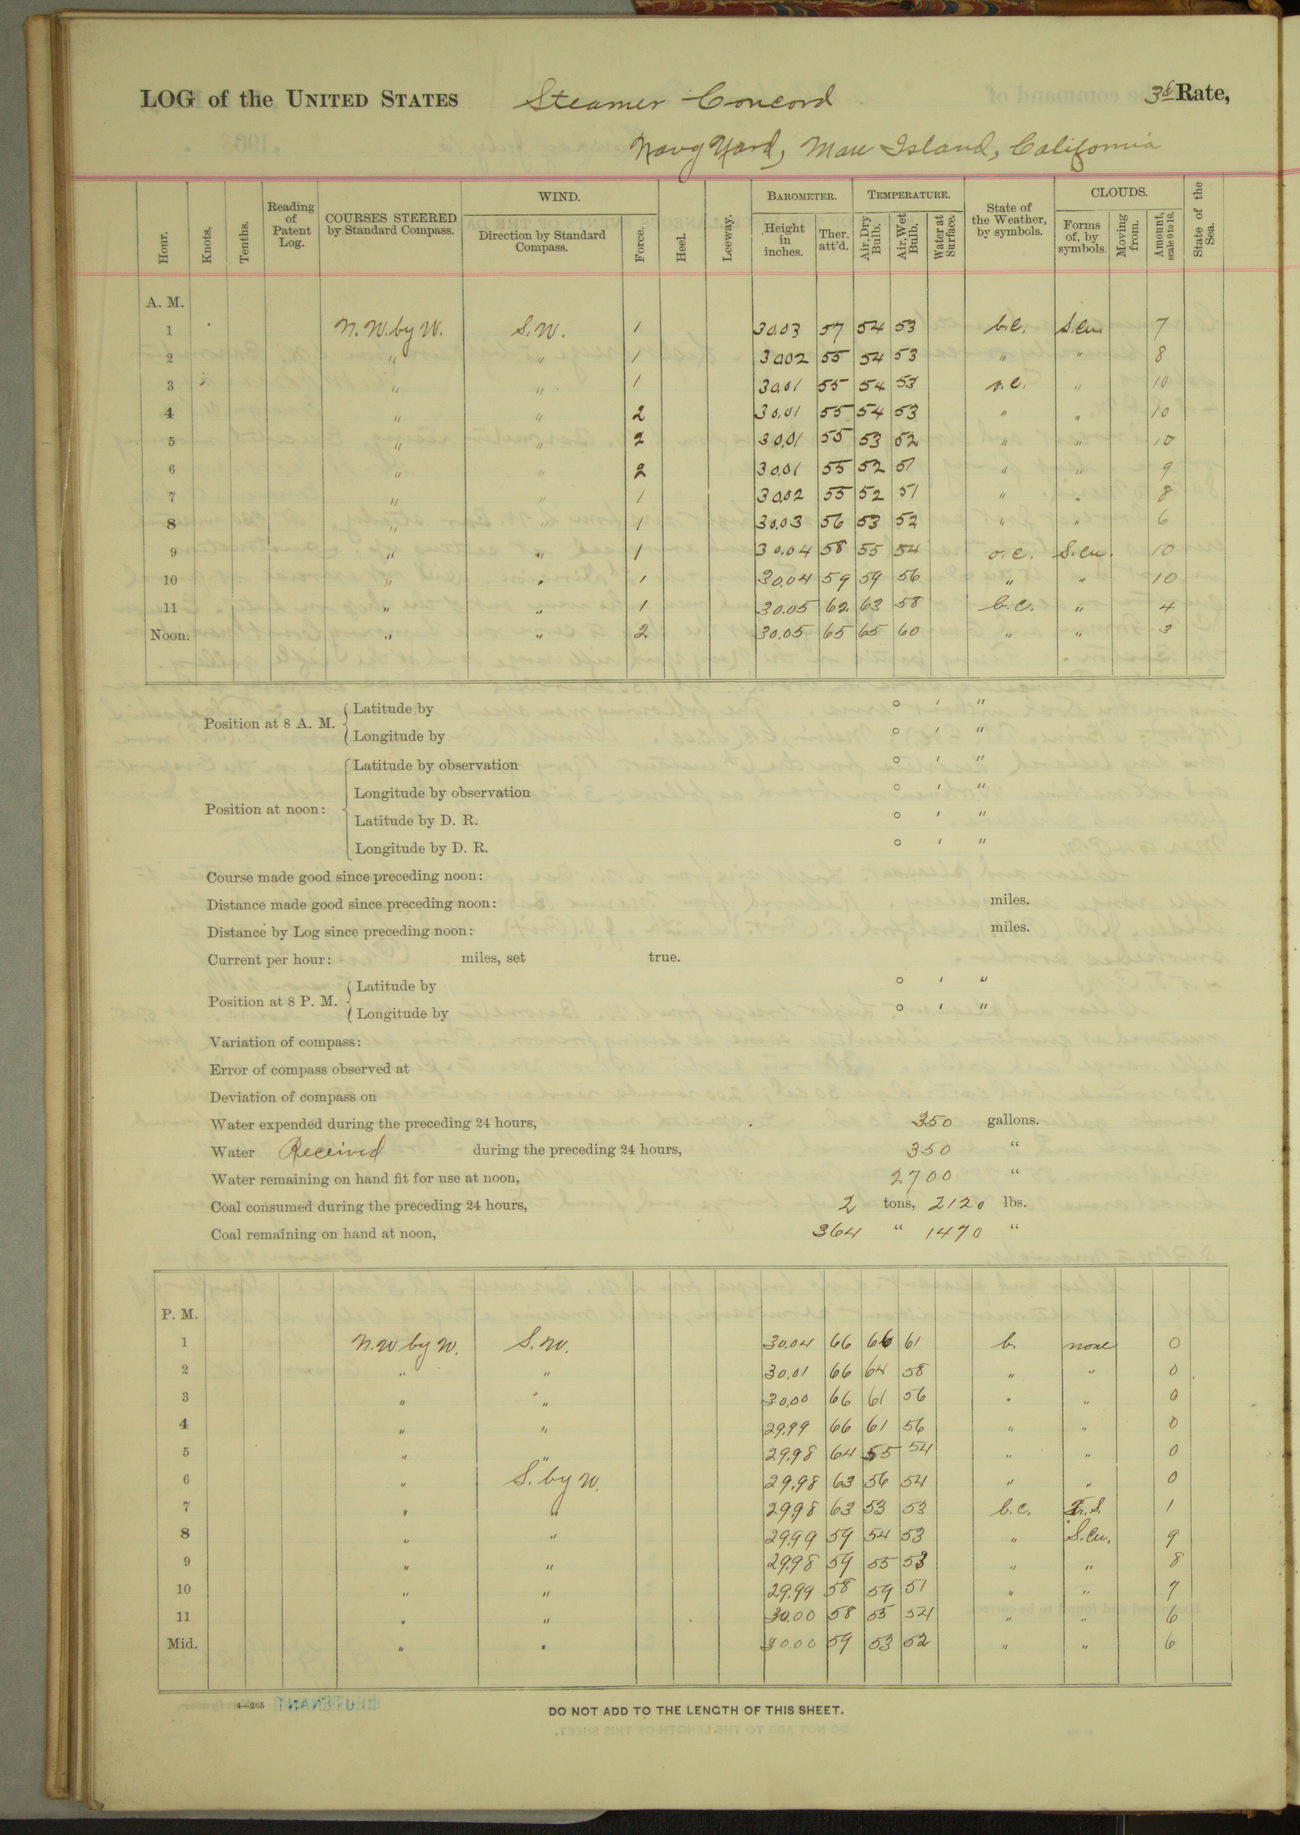 LOG of the UNITED STATES Steamer Concord 3d Rate,
Navy Yard, Mare Island, California
Hour. Knots. Tenths. Reading of Patent Log. COURSES STEERED by Standard Compass. WIND. Direction by Standard Compass. Force. Heel. Leeway. BAROMETER. Height in inches. Ther. att'd. TEMPERATURE. Air, Dry Bulb. Air, Wet Bulb. Water at Surface. State of the Weather, by symbols. CLOUDS. Forms of, by symbols. Moving from. Amount, scale 0 to 10. State of the Sea.
A. M.
1 N.W. by W. S.W. 1 30.03 57 54 53 b.c. S.cu. 7
2 " " 1 30.02 55 54 53 " " 8
3 " " 1 30.01 55 54 53 o.c. " 10
4 " " 2 30.01 55 54 53 " " 10
5 " " 2 30.01 55 53 52 " " 10
6 " " 2 30.01 55 52 51 " " 9
7 " " 1 30.02 55 52 51 " " 8
8 " " 1 30.03 56 53 52 " " 6
9 " " 1 30.04 58 55 54 o.c. S.cu. 10
10 " " 1 30.04 59 59 56 " " 10
11 " " 1 30.05 62 63 58 b.c. " 4
Noon. " " 2 30.05 65 65 60 " " 3
Position at 8 A. M. Latitude by ° ' "
Longitude by ° ' "
Position at noon: Latitude by observation ° ' "
Longitude by observation ° ' "
Latitude by D. R. ° ' "
Longitude by D. R. ° ' "
Course made good since preceding noon:
Distance made good since preceding noon: miles.
Distance by Log since preceding noon: miles.
Current per hour: miles, set true.
Position at 8 P. M. Latitude by ° ' "
Longitude by ° ' "
Variation of compass:
Error of compass observed at
Deviation of compass on
Water expended during the preceding 24 hours, 350 gallons.
Water Received during the preceding 24 hours, 350 "
Water remaining on hand fit for use at noon, 2700 "
Coal consumed during the preceding 24 hours, 2 tons, 2120 lbs.
Coal remaining on hand at noon, 364 " 1470 "
P. M.
1 N.W by W. S.W. 30.04 66 66 61 b. none 0
2 " " 30.01 66 64 58 " " 0
3 " " 30.00 66 61 56 " " 0
4 " " 29.99 66 61 56 " " 0
5 " " 29.98 64 55 54 " " 0
6 " S. by W. 29.98 63 56 54 " " 0
7 " " 29.98 63 53 53 b.c. S. 1
8 " " 29.99 59 54 53 " S.cu. 9
9 " " 29.98 59 55 53 " " 8
10 " " 29.99 58 59 51 " " 7
11 " " 30.00 58 55 54 " " 6
Mid. " " 30.00 59 53 52 " " 6
4—265 LIEUTENANT
DO NOT ADD TO THE LENGTH OF THIS SHEET.